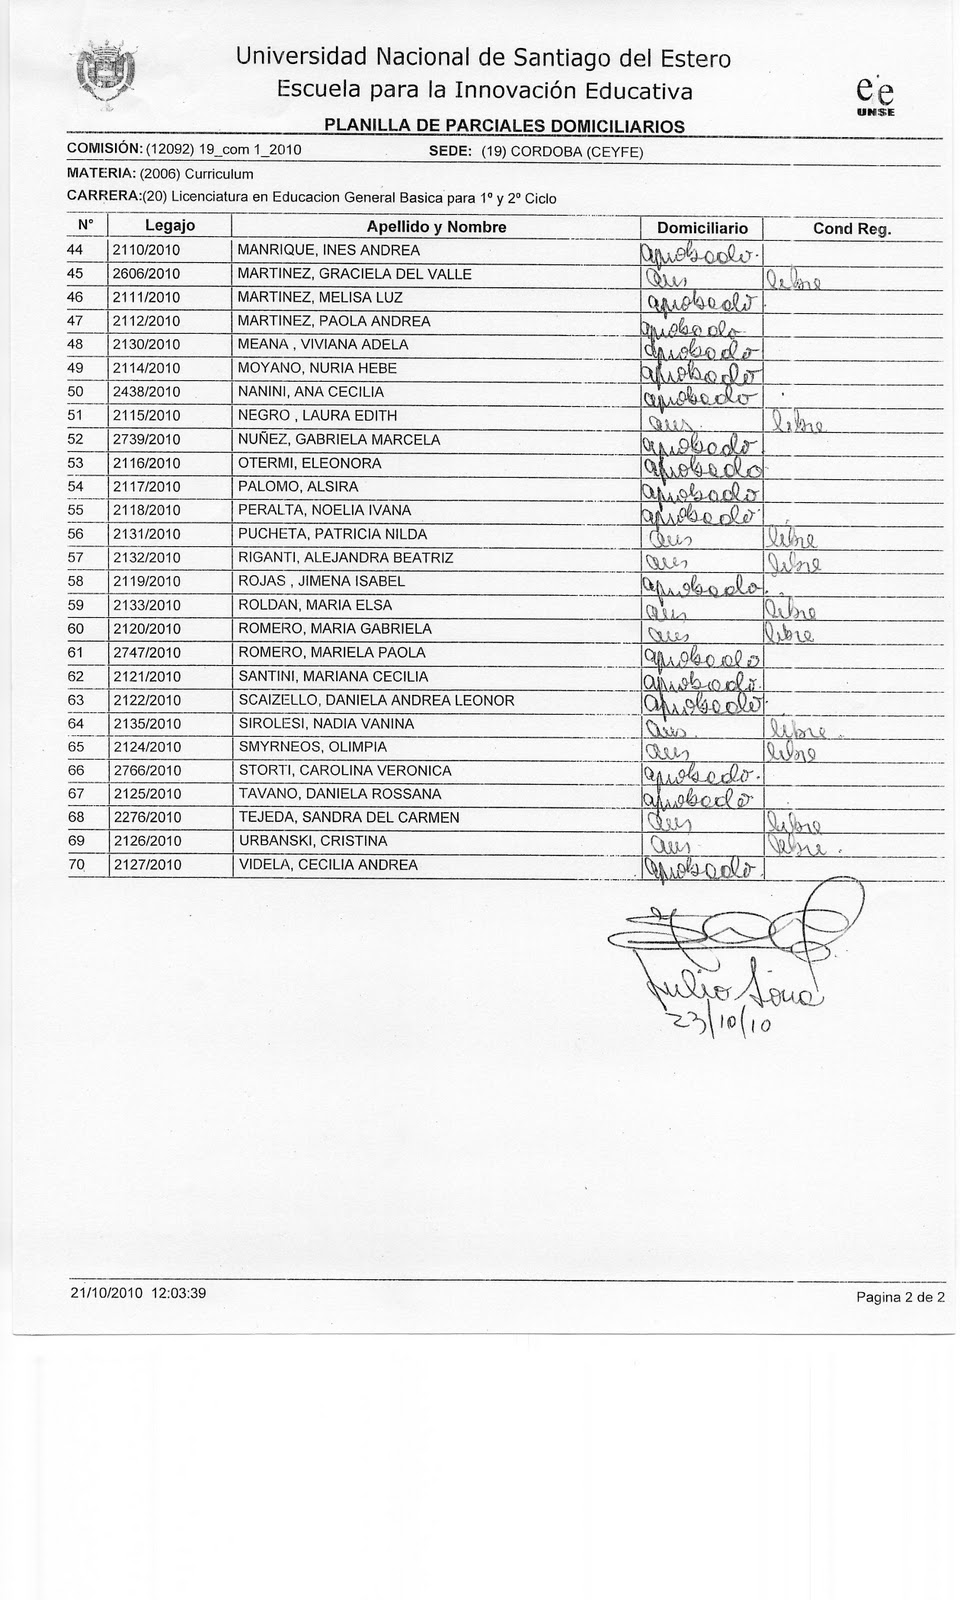 Universidad Nacional de Santiago del Estero
Escuela para la Innovación Educativa
ee
UNSE
PLANILLA DE PARCIALES DOMICILIARIOS
COMISIÓN: (12092) 19_com 1_2010 SEDE: (19) CORDOBA (CEYFE)
MATERIA: (2006) Curriculum
CARRERA:(20) Licenciatura en Educacion General Basica para 1º y 2º Ciclo
Nº Legajo Apellido y Nombre Domiciliario Cond Reg.
44 2110/2010 MANRIQUE, INES ANDREA aprobado.
45 2606/2010 MARTINEZ, GRACIELA DEL VALLE aus libre
46 2111/2010 MARTINEZ, MELISA LUZ aprobado
47 2112/2010 MARTINEZ, PAOLA ANDREA aprobado
48 2130/2010 MEANA , VIVIANA ADELA aprobado
49 2114/2010 MOYANO, NURIA HEBE aprobado
50 2438/2010 NANINI, ANA CECILIA aprobado
51 2115/2010 NEGRO , LAURA EDITH aus. libre
52 2739/2010 NUÑEZ, GABRIELA MARCELA aprobado
53 2116/2010 OTERMI, ELEONORA aprobado
54 2117/2010 PALOMO, ALSIRA aprobado
55 2118/2010 PERALTA, NOELIA IVANA aprobado
56 2131/2010 PUCHETA, PATRICIA NILDA aus libre
57 2132/2010 RIGANTI, ALEJANDRA BEATRIZ aus libre
58 2119/2010 ROJAS , JIMENA ISABEL aprobado.
59 2133/2010 ROLDAN, MARIA ELSA aus libre
60 2120/2010 ROMERO, MARIA GABRIELA aus libre
61 2747/2010 ROMERO, MARIELA PAOLA aprobado
62 2121/2010 SANTINI, MARIANA CECILIA aprobado.
63 2122/2010 SCAIZELLO, DANIELA ANDREA LEONOR aprobado
64 2135/2010 SIROLESI, NADIA VANINA aus. libre.
65 2124/2010 SMYRNEOS, OLIMPIA aus libre
66 2766/2010 STORTI, CAROLINA VERONICA aprobado.
67 2125/2010 TAVANO, DANIELA ROSSANA aprobado
68 2276/2010 TEJEDA, SANDRA DEL CARMEN aus libre
69 2126/2010 URBANSKI, CRISTINA aus libre.
70 2127/2010 VIDELA, CECILIA ANDREA aprobado
Julio
23/10/10
21/10/2010 12:03:39 Pagina 2 de 2